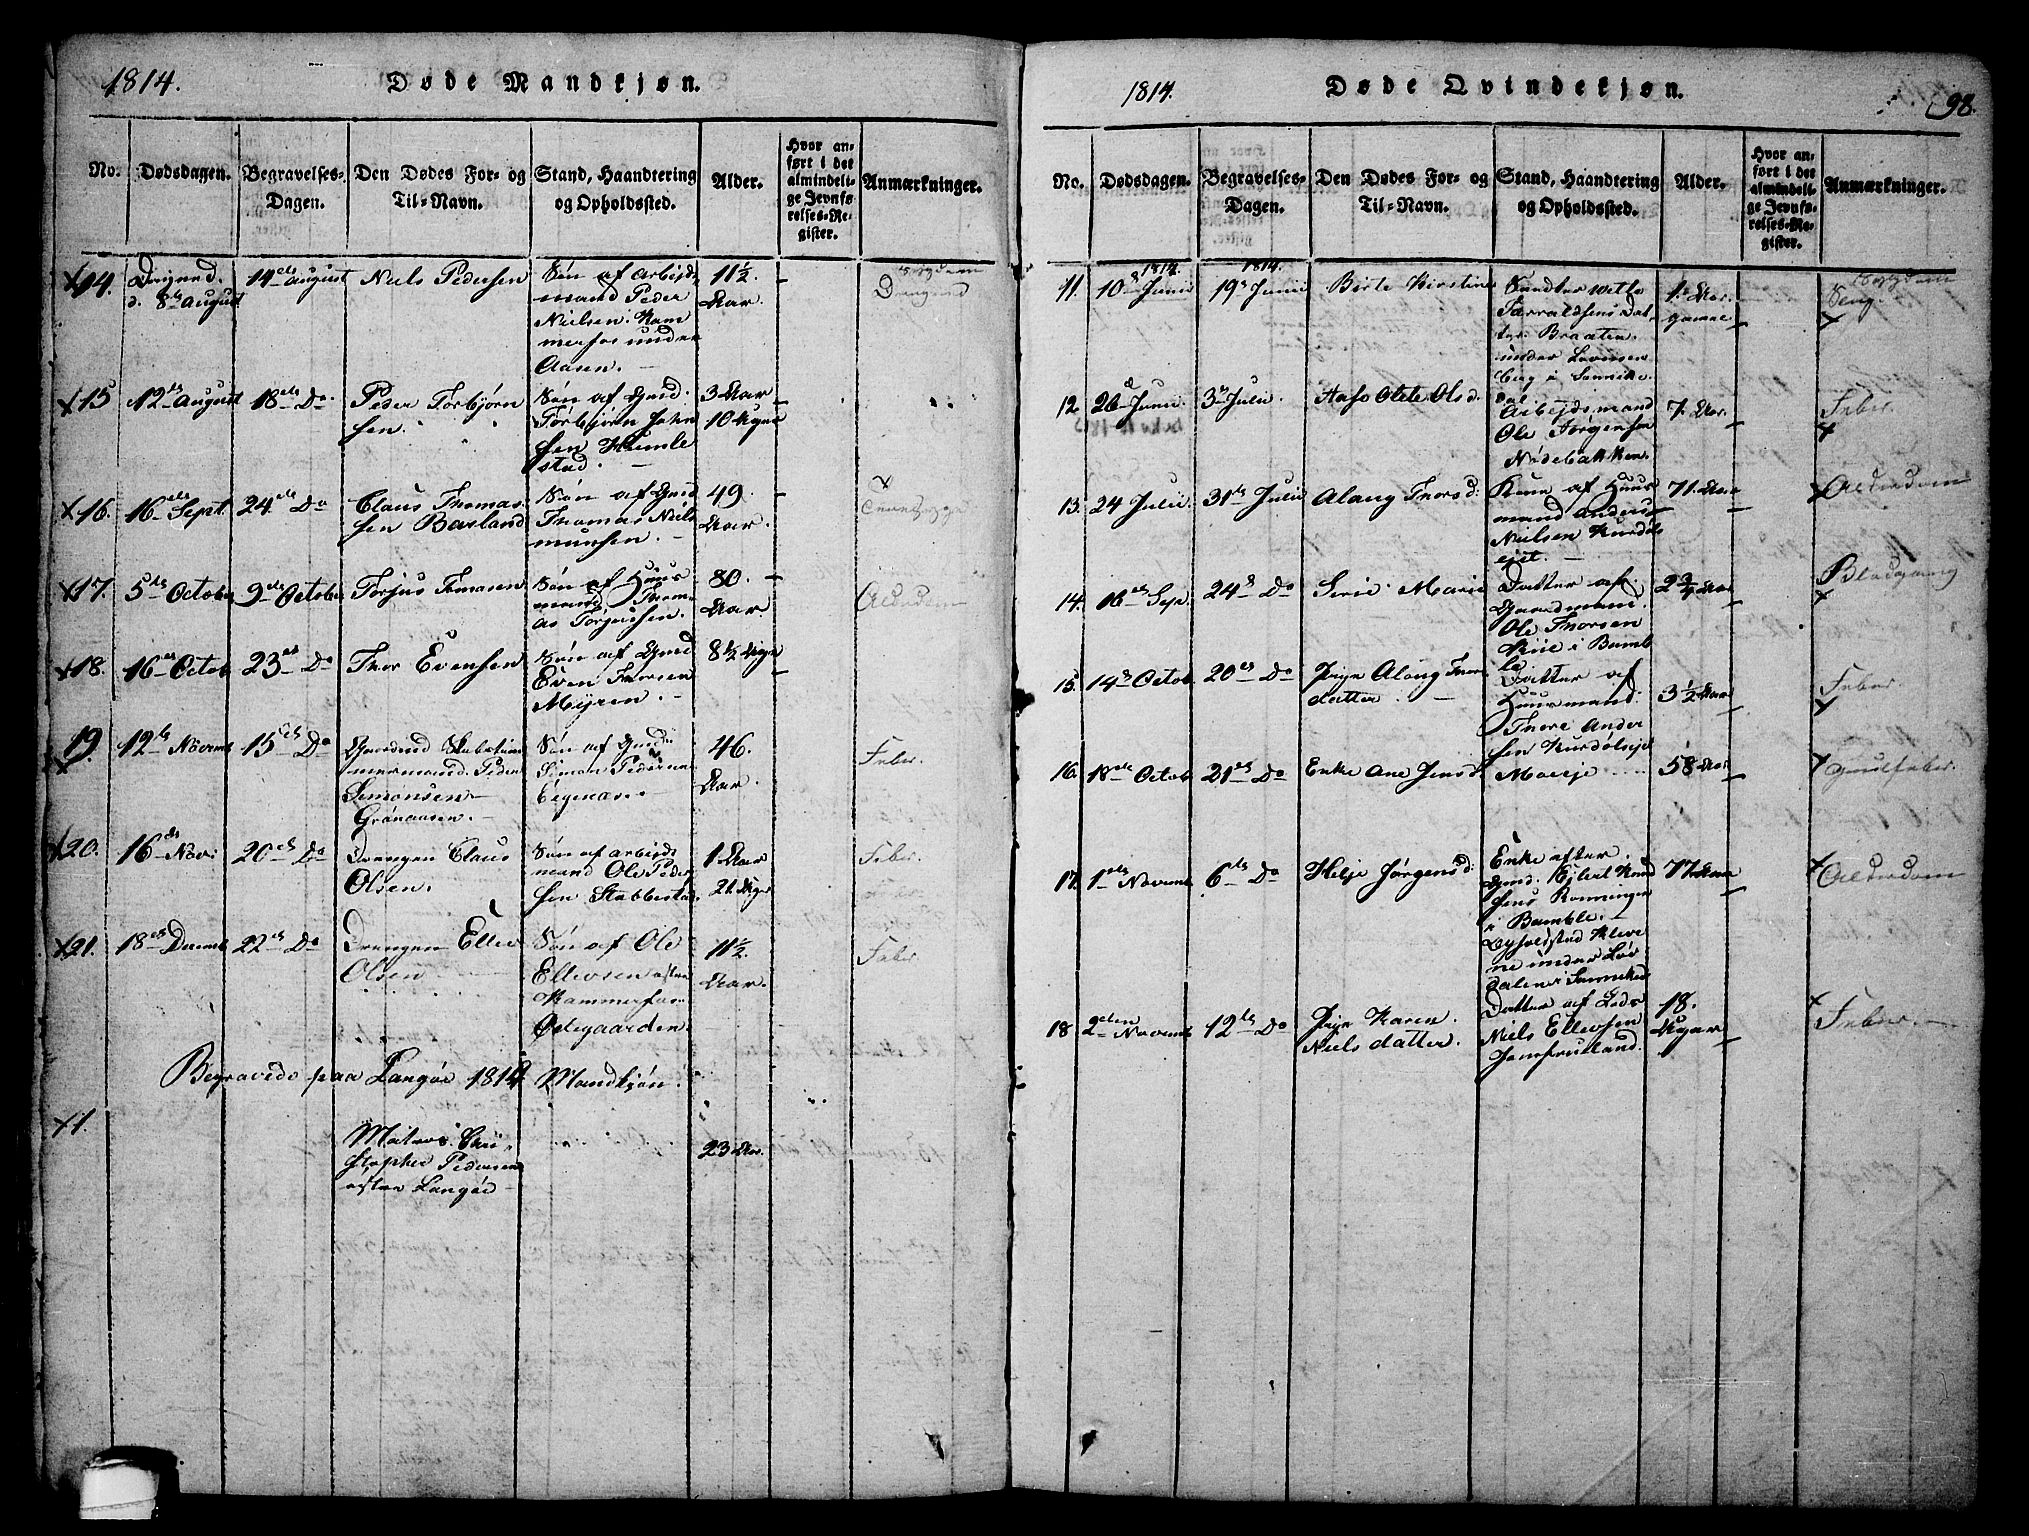 1814.
Døde Mandkjøn.
No.
Dødsdagen.
Begravelses-
Dagen.
Den Dødes For- og
Til-Navn.
Stand, Haandtering
og Opholdssted.
Alder.
Hvor an-
ført i det
almindeli-
ge Jevnfø-
relses-Re-
gister.
Anmærkninger.
14.
d. 8de August
14de August
Niels Pedersen
Søn af Arbejds
mand Peder
Nielsen. Kam
merfos under
Aasen.
11½
Aar.
15
12te August
18de Do.
Peder Torbjørn
sen.
Søn af Gmd.
Torbjørn John
sen Humle
stad.
3 Aar
10 Uger
16.
16de Sept.
24de Do
Claus Thomas
sen Barland
Søn af Gmd
Thomas Niels
49
Aar.
17.
5te Octobr
9de Octobr
Torjus Tomasen
Søn af Huus
mand Thom
as Torgersen.
80.
Aar.
Alderdom
18.
16de Octob
23de Do
Thor Evensen
Søn af Gmd
Even Thorsen
Myren.
8½ Uger
19.
12te Novemb
15de Do
mermand. Peder
Simonsen
Grønaasen.
Søn af Gmd
Simon Pedersen
46.
Aar.
Feber.
20.
16de Novr
20de Do
Drengen Claus
Olsen.
Søn af Arbejds
mand Ole Peder
sen Stabbestad
1 Aar
21 Uger
Feber.
21.
18de Decemb
22de Do
Drengen Ellev
Olsen
Søn af Ole
Ellevsen
Kammerfos
Ødegaarden.
11½
Aar.
Feber
Begravede paa Langøe 1814 Mandkjøn.
1.
Matros Chri
stopher Pedersen
østre Langøe
23 Aar.
1814.
Døde Qvindekjøn.
98.
No.
Dødsdagen.
Begravelses-
Dagen.
Den Dødes For- og
Til-Navn.
Stand, Haandtering
og Opholdssted.
Alder.
Hvor an-
ført i det
almindeli-
ge Jevnfø-
relses-Re-
gister.
Anmærkninger.
11.
1814.
10de Junii
1814.
19de Junii
Birte Kirstine
Tarraldsens Dat
ter. Braaten
under Lovisen
berg i Sannike
dal
1 Aar
gammel
12.
26de Junii.
3die Julii.
Aaso Olete Olsd.
Arbejdsmand
Ole Jørgensen
Nødebakken
7. Aar.
Feber.
13.
24 Julii.
31te Julii
Alaug Thorsd.
Kone af Huus
mand Anders
Nielsen Kurdøls
ejet.
71. Aar
Alderdom
14.
16de Sep.
24de Do
Sirie Marie
Datter af
Gaardmand
Ole Thorsen
i Bamb
le
2¾ Aar
Blodgang
15.
14de Octob.
20de Do
Alaug Thors
datter.
Datter af
Huusmand
Thore Ander
sen Kurdølseje
3½ Aar
Feber
16.
18de Octob
21de Do
Enke Ane Jensd.
58 Aar
17.
1ste Novemb
6te Do
Helje Jørgensd.
Enke efter
Gmd. Ejlert Knud
sens Rønningen
i Bamble.
under Lør
dalen i Sannikedal
77 Aar
Alderdom
18.
2den Novemb.
12te Do
Pige Karen
Niels datter.
Datter af Lods
Niels Ellevsen
Jomfrueland.
18.
Uger
Feber.